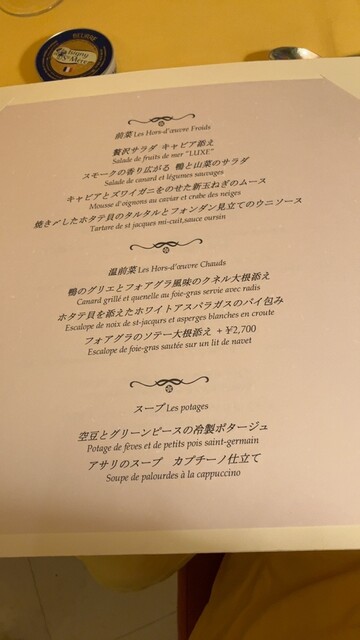 BEURRE
前菜 Les Hors-d'œuvre Froids
贅沢サラダ キャビア添え
Salade de fruits de mer "LUXE"
スモークの香り広がる 鴨と山菜のサラダ
Salade de canard et légumes sauvages
キャビアとズワイガニをのせた新玉ねぎのムース
Mousse d'oignons au caviar et crabe des neiges
焼き〆したホタテ貝のタルタルとフォンダン見立てのウニソース
Tartare de st jacques mi-cuit,sauce oursin
温前菜 Les Hors-d'œuvre Chauds
鴨のグリエとフォアグラ風味のクネル大根添え
Canard grillé et quenelle au foie-gras servie avec radis
ホタテ貝を添えたホワイトアスパラガスのパイ包み
Escalope de noix de st-jacqurs et asperges blanches en croute
フォアグラのソテー大根添え + ¥2,700
Escalope de foie-gras sautée sur un lit de navet
スープ Les potages
空豆とグリーンピースの冷製ポタージュ
Potage de fèves et de petits pois saint-germain
アサリのスープ カプチーノ仕立て
Soupe de palourdes à la cappuccino